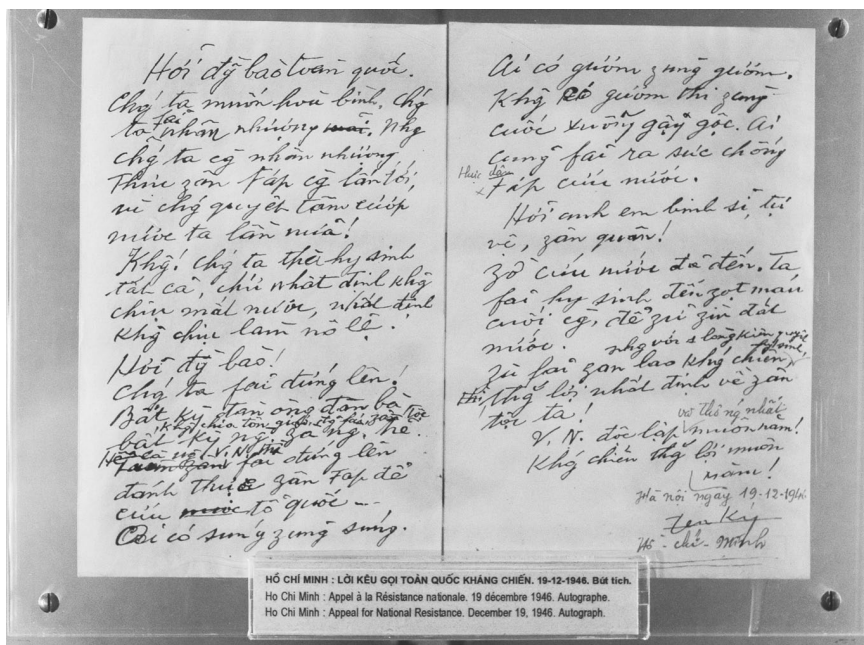 Hỡi đg̃ bào toàn quốc.
Chǵ ta muốn hoà bình, chǵ
ta fải nhân nhượng. Nhg
chǵ ta cg̀ nhân nhượng
thực zân Fáp cg̀ lấn tới,
vì chǵ quyết tâm cướp
nước ta lần nữa!
Khg! Chǵ ta thà hy sinh
tất cả, chứ nhất định khg
chịu mất nước, nhất định
khg chịu làm nô lệ.
Hỡi đg̀ bào!
Chǵ ta fải đứng lên!
Bất kỳ đàn ông đàn bà
bất kỳ ng. zà ng. trẻ.
khg chia tôn giáo, đg̉ fái, zân tộc
Hễ là ng. V.N. thì
fải đứng lên
đánh thực zân Fáp để
cứu nước tổ quốc ---
Ai có súng zùng súng.
Ai có gươm zùng gươm.
Khg có gươm thì zùng
cuốc xuổng gậy gộc. Ai
cũng fải ra sức chống
thực dân
Fáp cứu nước.
Hỡi anh em binh sĩ, tự
vệ, zân quân!
Zờ cứu nước đã đến. Ta
fải hy sinh đến zọt máu
cuối cg̀, để zữ zìn đất
nước.
Zù fải zan lao khǵ chiến,
nhg với 1 lòng kiên quyết
hy sinh,
thì thǵ lợi nhất định về zân
tộc ta!
V.N. độc lập và thống nhất muôn năm!
Khǵ chiến thǵ lợi muôn
năm!
Hà nội ngày 19-12-1946
Ký
Hồ-chí-Minh
HỒ CHÍ MINH : LỜI KÊU GỌI TOÀN QUỐC KHÁNG CHIẾN. 19-12-1946. Bút tích.
Ho Chi Minh : Appel à la Résistance nationale. 19 décembre 1946. Autographe.
Ho Chi Minh : Appeal for National Resistance. December 19, 1946. Autograph.